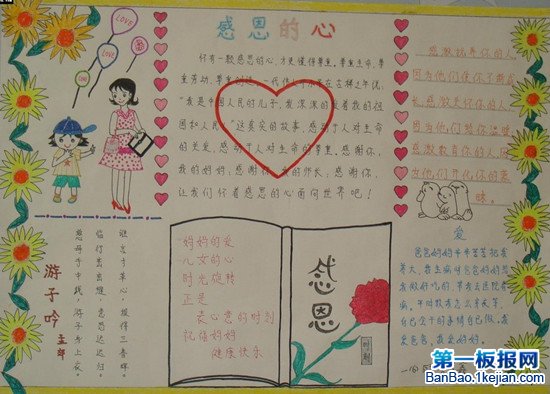 LOVE
Love
Love
感恩的心
怀有一颗感恩的心,才更懂得尊重,尊重生命、尊
重劳动、尊重创造。一代伟人
在古稀之年说:
"我是中国人民的儿子,我深深的爱着我的祖
国和人民。"这真实的故事,感动于人对生命
的关爱,感动于人对生命的尊重。感谢你,
我的妈妈,感谢你,我的师长;感谢你,
让我们怀着感恩的心面向世界吧!
感激抚养你的人,
因为他们使你了解成
长;感激关怀你的人,
因为他们给你温暖;
感激教育你的人,因
为他们开化你的蒙
昧。
游子吟
慈母手中线,游子身上衣。
临行密密缝,意恐迟迟归。
谁言寸草心,报得三春晖。
妈妈的爱
儿女的心
时光旋转
正是
表心意的时刻
祝福妈妈
健康快乐
感恩
爱
爸爸妈妈辛辛苦苦把我
养大,我生病时爸爸妈妈想
第一板报网
BanBao.1kejian.com